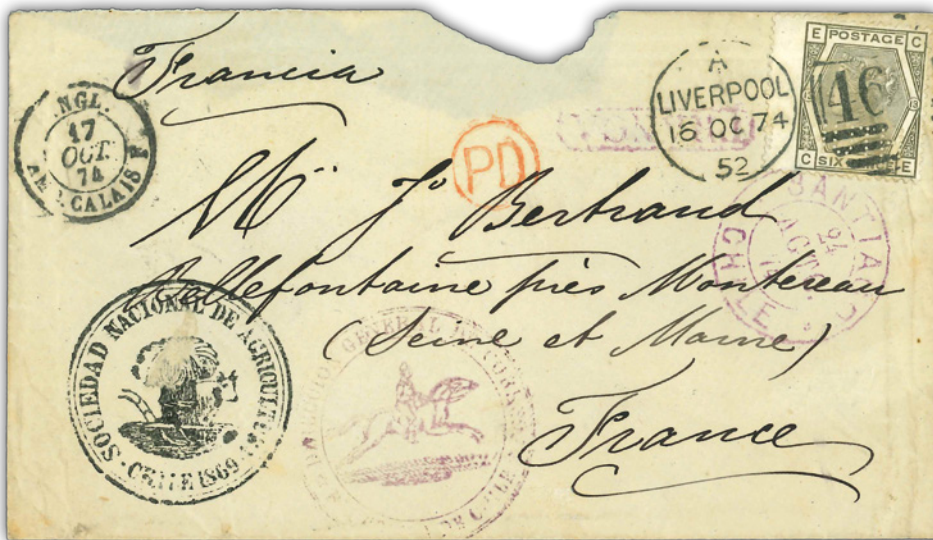 Francia
ANGL.
17
OCT.
74
CALAIS
PD
A
LIVERPOOL
16 OC 74
52
E POSTAGE C
46
C SIX E
SANTIAGO
24
AGTO
CHILE
Mr. Jh Bertrand
Bellefontaine près Montereau
(Seine et Marne)
France
SOCIEDAD NACIONAL DE AGRICULTURA
CHILE 1869
GENERAL DE CORREOS
DE CHILE